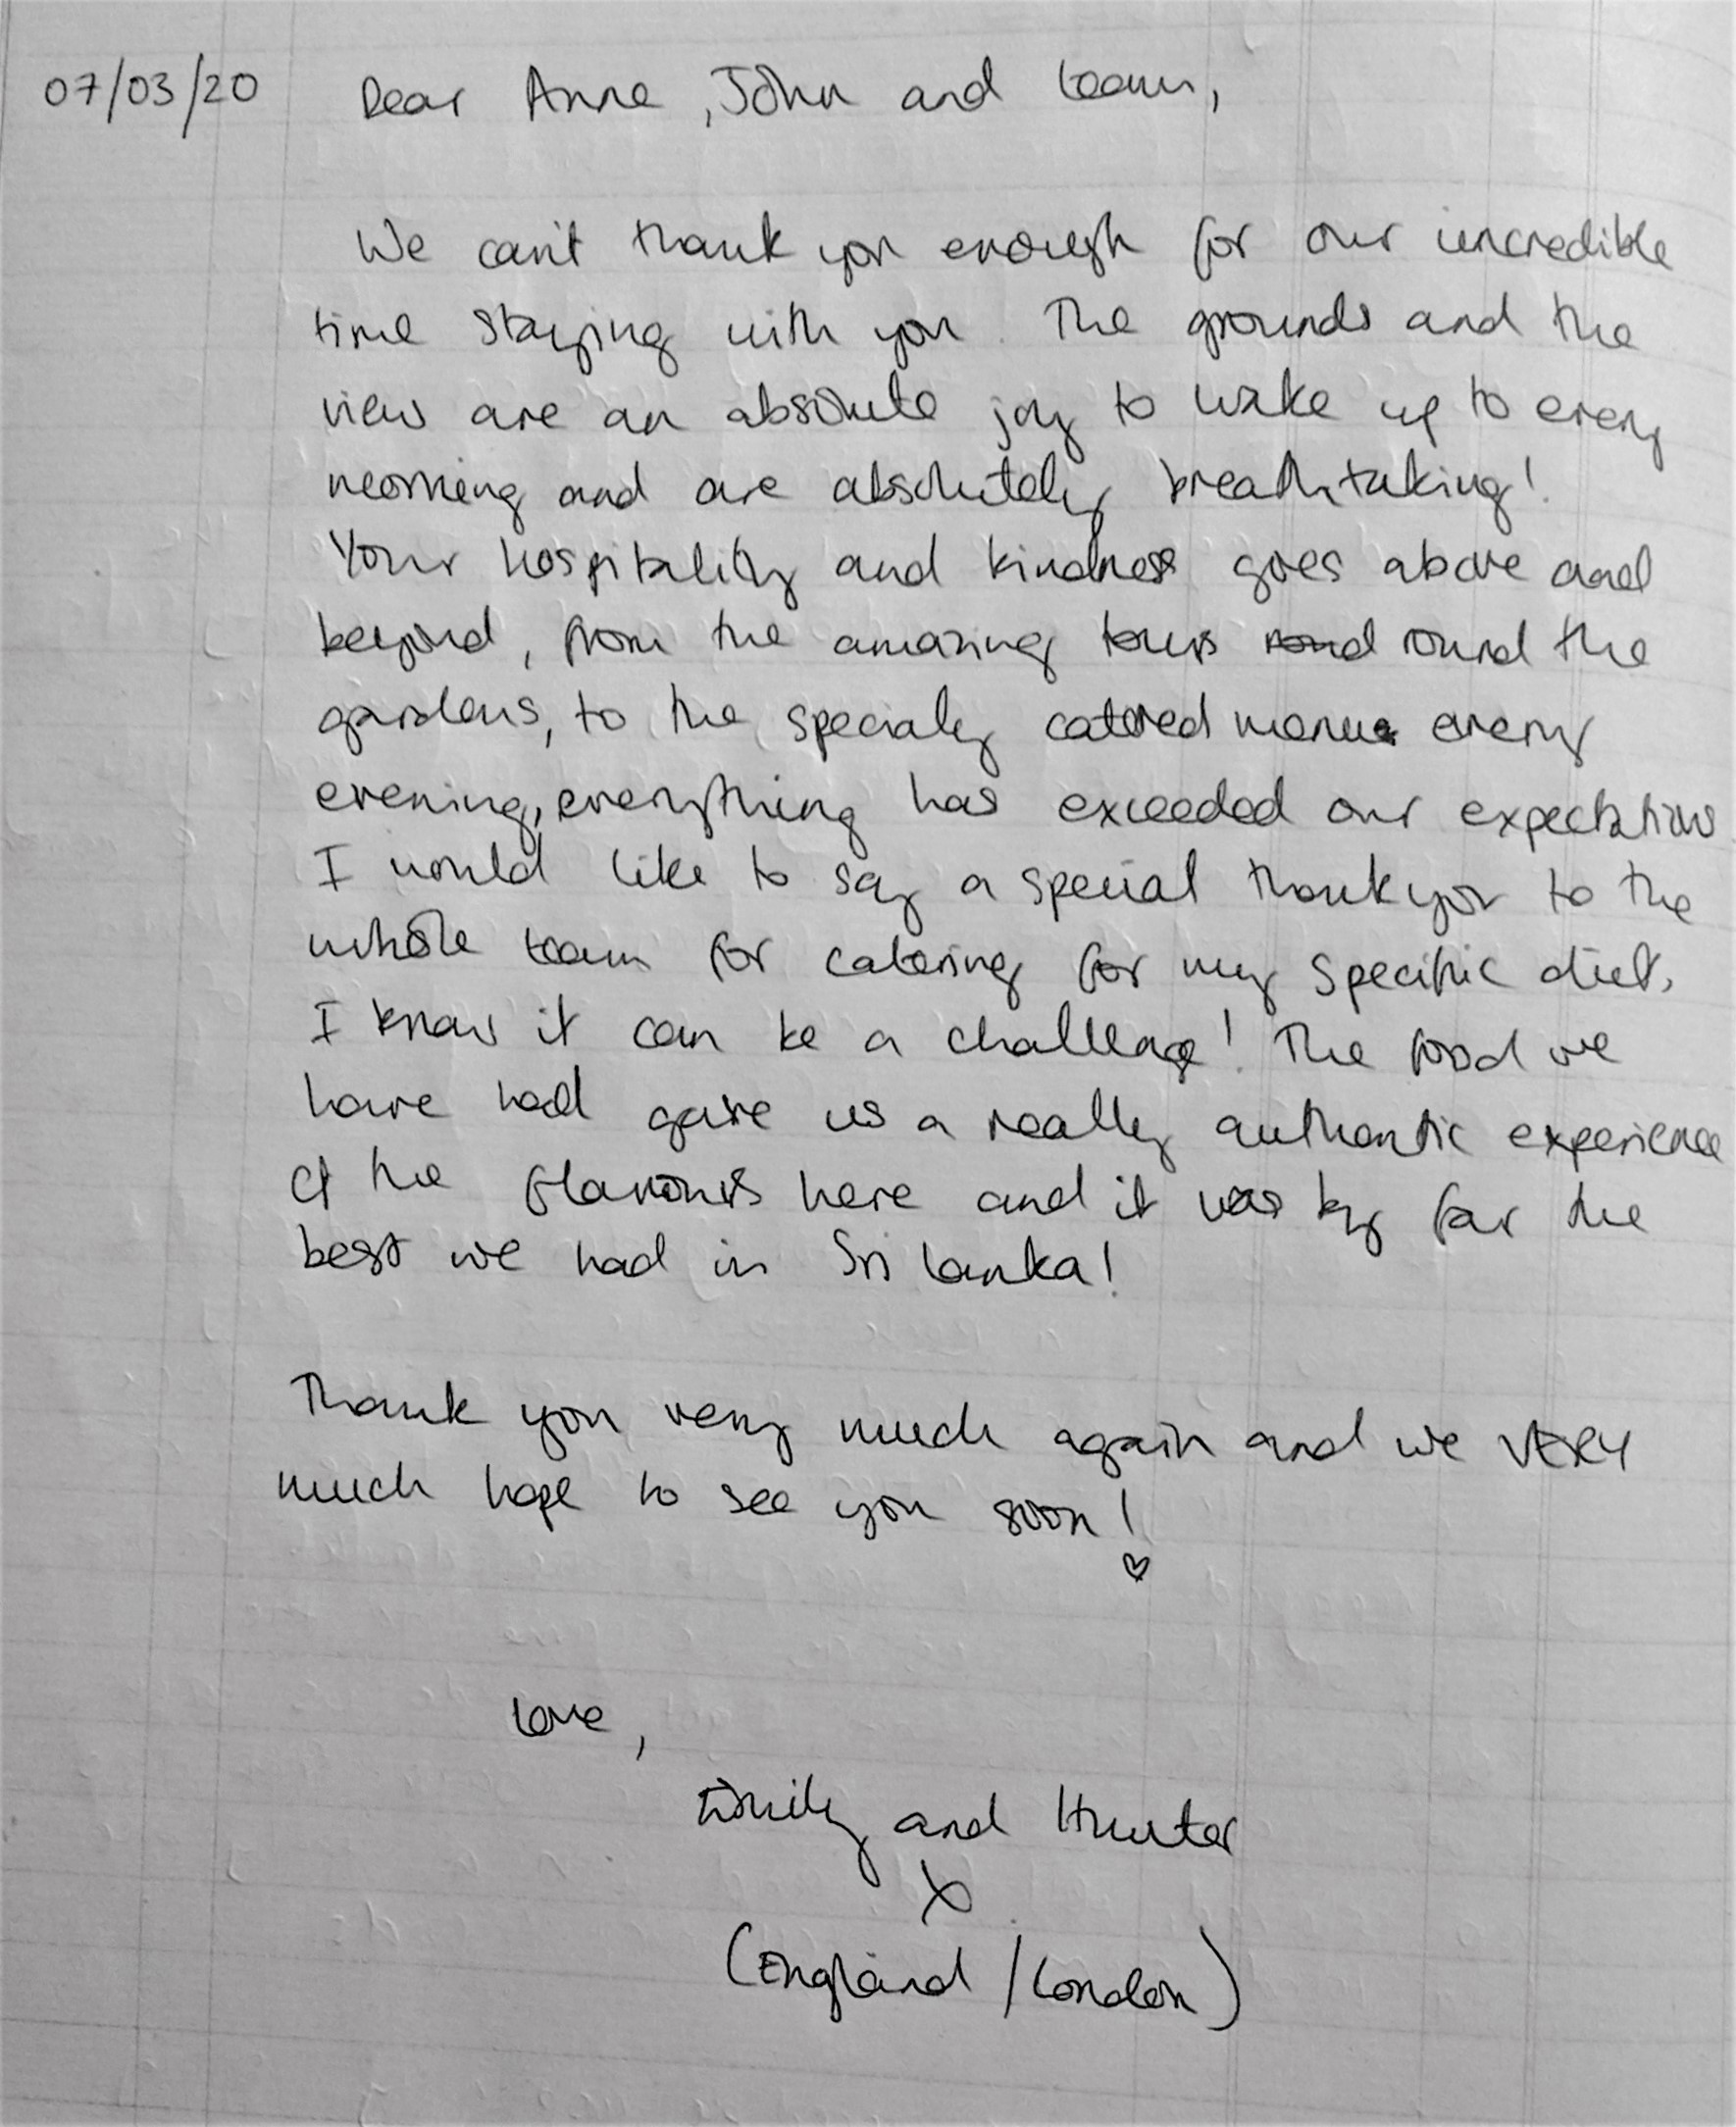 07/03/20 Dear Anne, John and team,
We can't thank you enough for our incredible
time staying with you. The grounds and the
view are an absolute joy to wake up to every
morning and are absolutely breathtaking!
Your hospitality and kindness goes above and
beyond, from the amazing tours round the
gardens, to the specialy catered menu every
evening, everything has exceeded our expectations
I would like to say a special thankyou to the
whole team for catering for my specific diet,
I know it can be a challenge! The food we
have had gave us a really authentic experience
of the flavours here and it was by far the
best we had in Sri Lanka!
Thank you very much again and we VERY
much hope to see you soon!
♡
Love,
Emily and Hunter
x
(England / London)